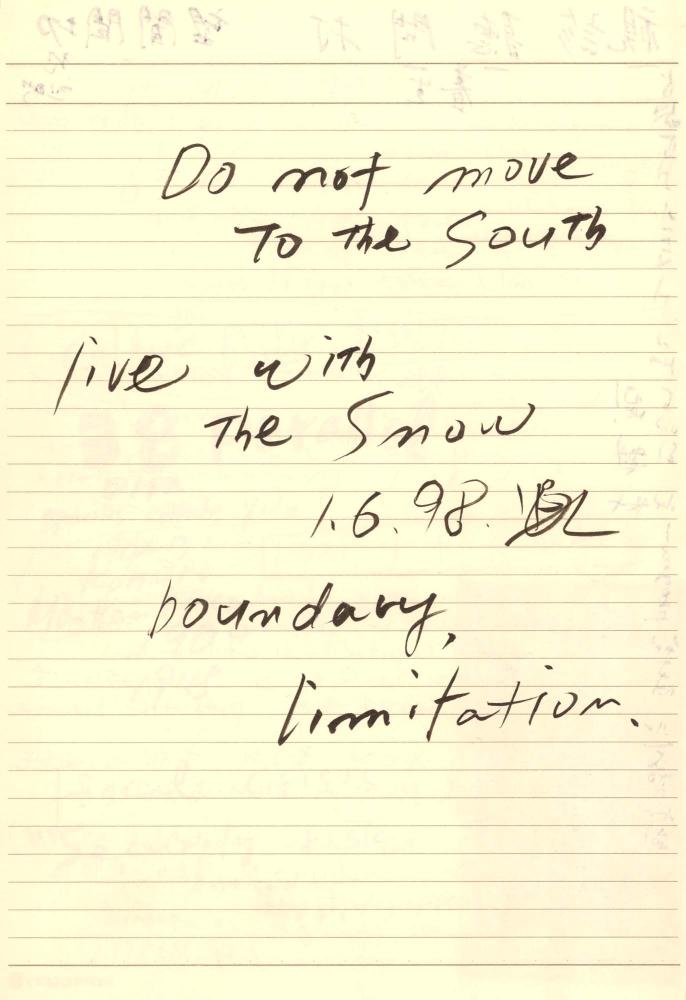 Do not move
To the South
live with
the Snow
1.6.98.
boundary,
limitation.